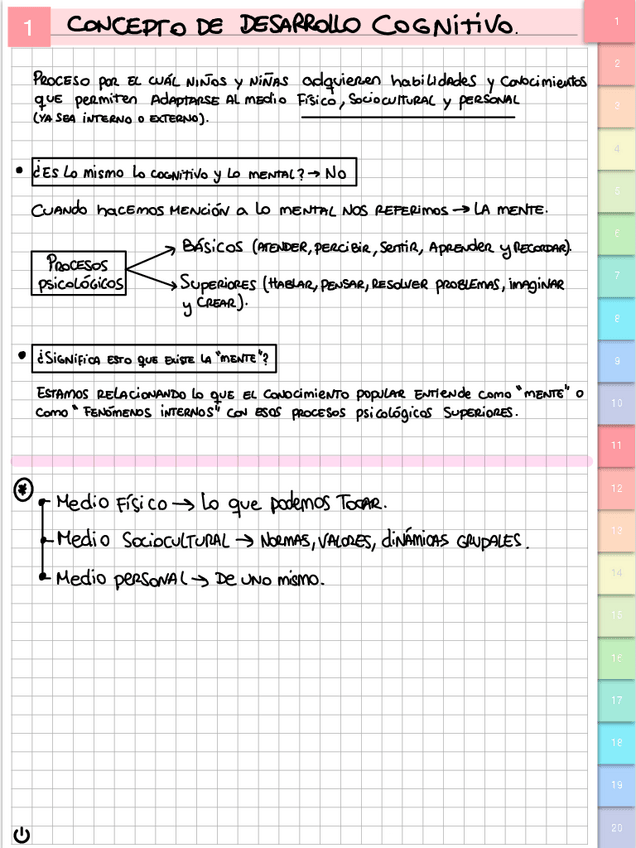 1 CONCEPTO DE DESARROLLO COGNITIVO.
PROCESO POR EL CUÁL NIÑOS Y NIÑAS adquieren habilidades y Conocimientos
QUE permiten ADAPTARSE AL MEDIO Físico, SOCIOCULTURAL y PERSONAL
(YA SEA INTERNO O EXTERNO).
• ¿ES Lo mismo lo COGNITIVO y Lo MENTAL? → No
CUANDO hacemos MENCIÓN a lo MENTAL NOS REFERIMOS → LA MENTE.
PROCESOS
PSICOLÓGICOS
BÁSICOS (ATENDER, PERCIBIR, SENTIR, APRENDER y RECORDAR).
SUPERIORES (HABLAR, PENSAR, RESOLVER PROBLEMAS, IMAGINAR
y CREAR).
• ¿SIGNIFICA ESTO QUE EXISTE LA "MENTE"?
ESTAMOS RELACIONANDO lo QUE EL CONOCIMIENTO POPULAR ENTIENDE COMO "MENTE" O
COMO "FENÓMENOS INTERNOS" CON ESOS PROCESOS PSICOLÓGICOS SUPERIORES.
*
Medio Físico → Lo que podemos TOCAR.
Medio SOCIOCULTURAL → NORMAS, VALORES, dINÁMICAS GRUPALES.
Medio personal → DE UNO mismo.
1
2
3
4
5
6
7
8
9
10
11
12
13
14
15
16
17
18
19
20